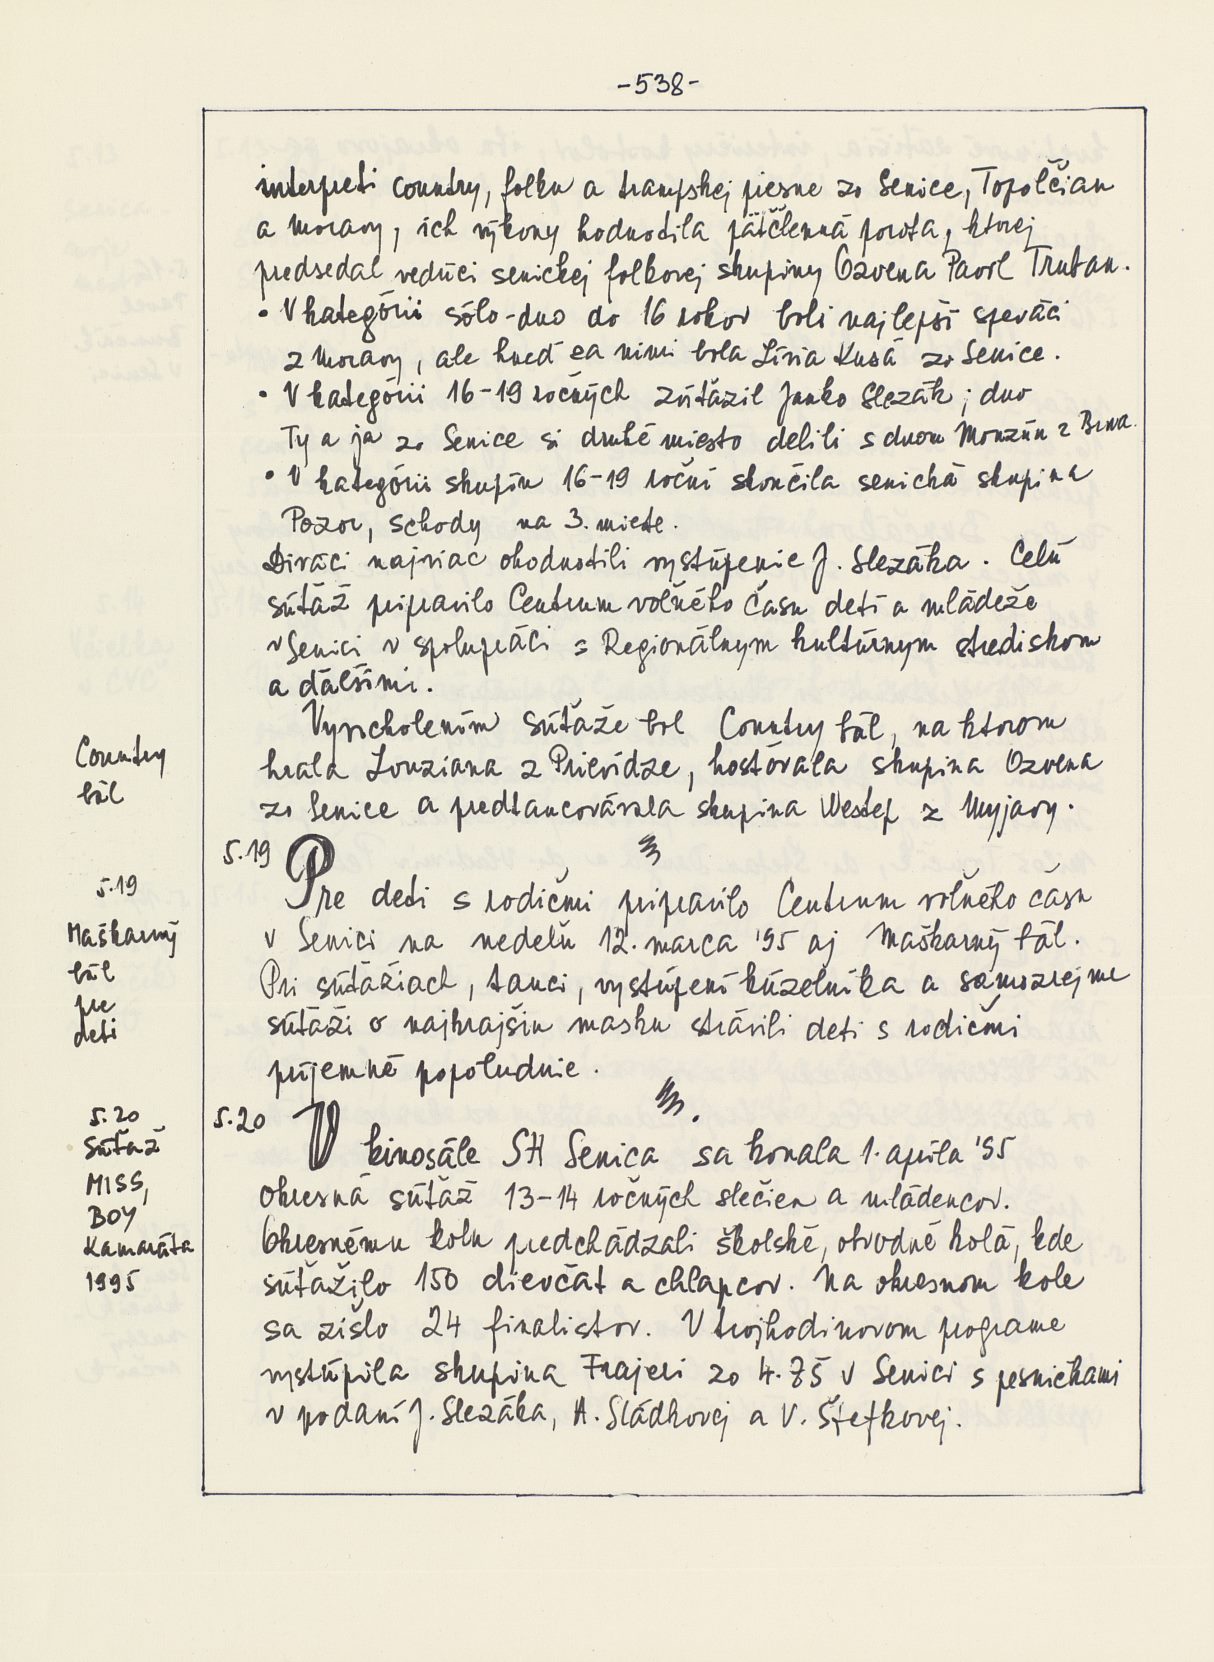 -538-
interpreti country, folku a trampskej piesne zo Senice, Topoľčian
a Moravy, ich výkony hodnotila päťčlenná porota, ktorej
predsedal vedúci senickej folkovej skupiny Ozvena Pavol Truban.
• V kategórii sólo-duo do 16 rokov boli najlepší speváci
z Moravy, ale hneď za nimi bola Lívia Kusá zo Senice.
• V kategórii 16-19 ročných zvíťazil Janko Slezák; duo
Ty a ja zo Senice si druhé miesto delili s duom Monzún z Brna.
• V kategórii skupín 16-19 roční skončila senická skupina
Pozor, schody na 3. mieste.
Diváci najviac ohodnotili vystúpenie J. Slezáka. Celú
súťaž pripravilo Centrum voľného času detí a mládeže
v Senici v spolupráci s Regionálnym kultúrnym strediskom
a ďalšími.
Country
bál
Vyvrcholením súťaže bol Country bál, na ktorom
hrala Louziana z Prievidze, hosťovala skupina Ozvena
zo Senice a predtancovávala skupina Westep z Myjavy.
5.19
Maškarný
bál
pre
deti
5.19 Pre deti s rodičmi pripravilo Centrum voľného času
v Senici na nedeľu 12. marca '95 aj Maškarný bál.
Pri súťažiach, tanci, vystúpení kúzelníka a samozrejme
súťaži o najkrajšiu masku strávili deti s rodičmi
príjemné popoludnie.
5.20
Súťaž
MISS,
BOY
Kamaráta
1995
5.20 V kinosále SH Senica sa konala 1. apríla '95
okresná súťaž 13-14 ročných slečien a mládencov.
Okresnému kolu predchádzali školské, obvodné kolá, kde
súťažilo 150 dievčat a chlapcov. Na okresnom kole
sa zišlo 24 finalistov. V trojhodinovom programe
vystúpila skupina Frajeri zo 4. ZŠ v Senici s pesničkami
v podaní J. Slezáka, A. Sládkovej a V. Štefkovej.